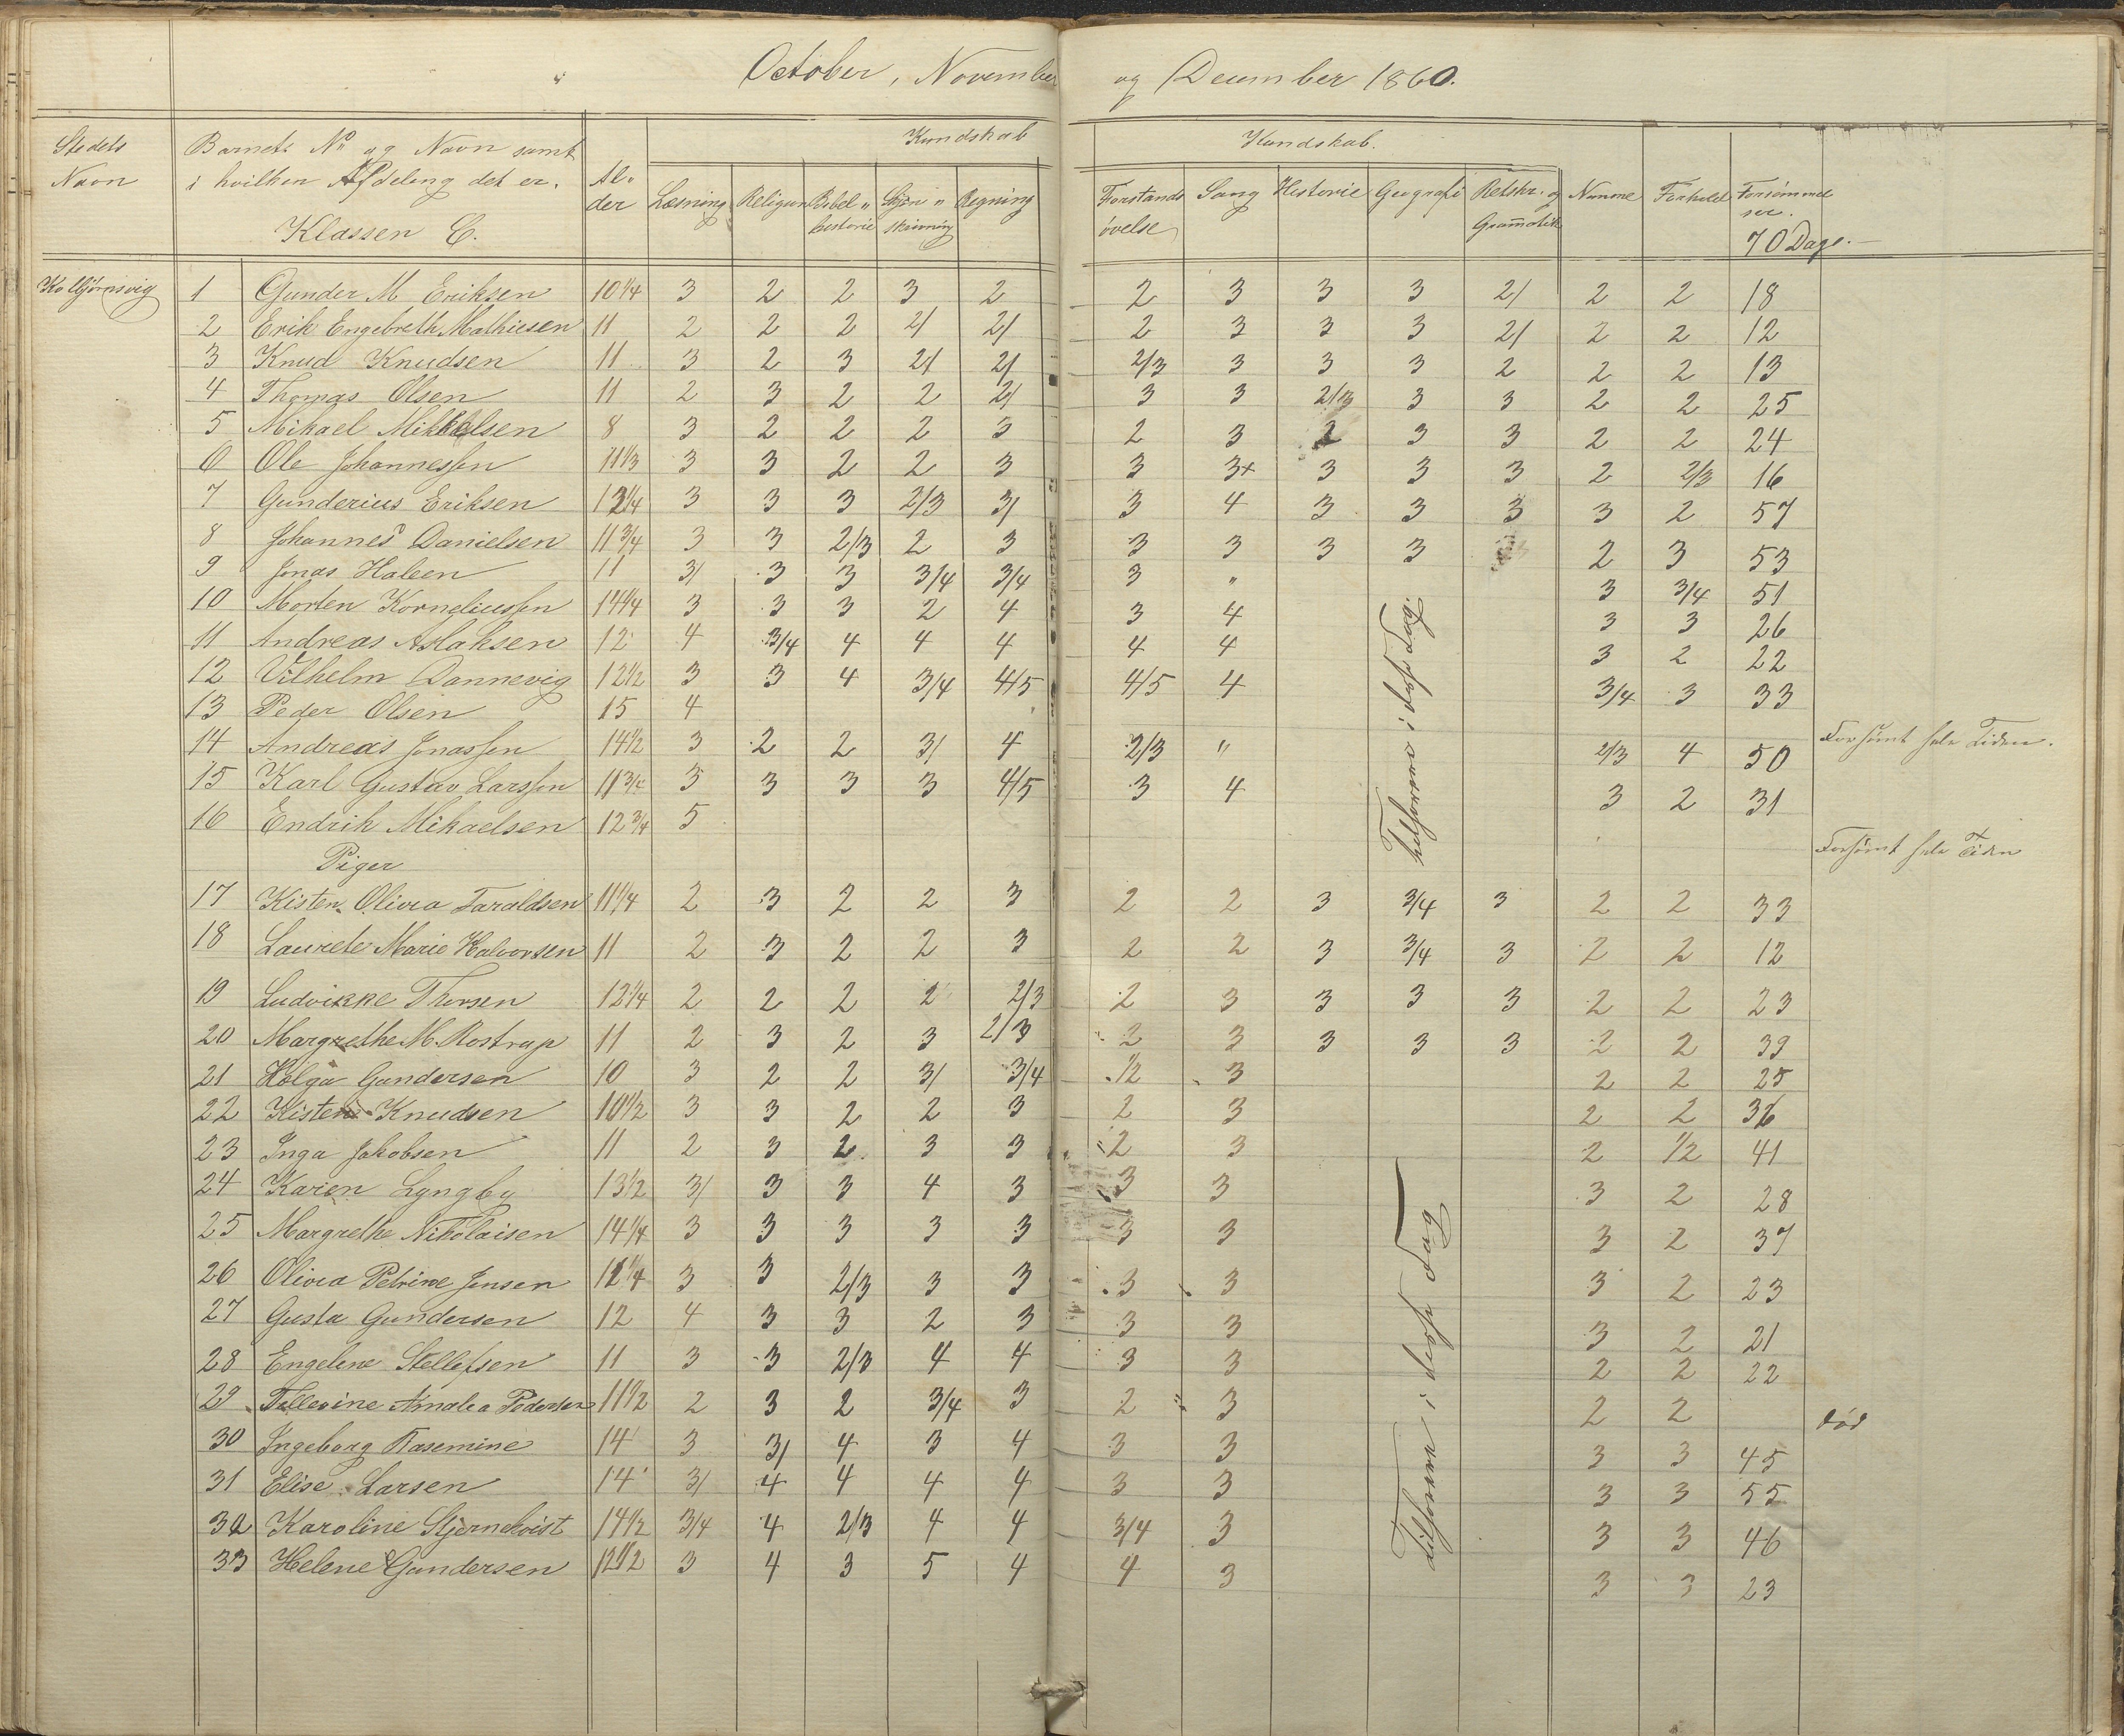 October, November og December 1860.
Stedets Navn
Barnets No og Navn samt i hvilken Afdeling det er.
Klassen C.
Alder
Kundskab
Læsning Religion Bibelhistorie Skjønskrivning Regning
Kundskab.
Forstandsøvelse Sang Historie Geografi Retskr. og Grammatik Numme Forhold Forsømmelser.
70 Dage.
Kolbjørnsvig
1 Gunder M Eriksen 10 1/4 3 2 2 3 2 2 3 3 3 2/ 2 2 18
2 Erik Engebreth Mathiesen 11 2 2 2 2/ 2/ 2 3 3 3 2/ 2 2 12
3 Knud Knudsen 11 3 2 3 2/ 2/ 2/3 3 3 3 2 2 2 13
4 Thomas Olsen 11 2 3 2 2 2/ 3 3 2/3 3 3 2 2 25
5 Mikael Mikkelsen 8 3 2 2 2 3 2 3 2 3 3 2 2 24
6 Ole Johannessen 11 1/3 3 3 2 2 3 3 3+ 3 3 3 2 2/3 16
7 Gunderius Eriksen 12 1/4 3 3 3 2/3 3/ 3 4 3 3 3 3 2 57
8 Johannes Danielsen 11 3/4 3 3 2/3 2 3 3 3 3 3 2 3 53
9 Jonas Haleen 11 3/ 3 3 3/4 3/4 3 " 3 3/4 51
10 Morten Korneliussen 14 1/4 3 3 3 2 4 3 4 3 3 26
11 Andreas Aslaksen 12 4 3/4 4 4 4 4 4 3 2 22
12 Vilhelm Dannevig 12 1/2 3 3 4 3/4 4/5 4/5 4 3/4 3 33
13 Peder Olsen 15 4 Forsømt hele Tiden.
14 Andreas Jonassen 14 1/2 3 2 2 3/ 4 2/3 " 2/3 4 50
15 Karl Gustav Larssen 11 3/4 3 3 3 3 4/5 3 4 3 2 31
16 Endrik Mikaelsen 12 3/4 5 Forsømt hele Tiden
i disse Fag.
Piger
17 Kisten Olivia Taraldsen 11 1/4 2 3 2 2 3 2 2 3 3/4 3 2 2 33
18 Laurete Marie Halvorsen 11 2 3 2 2 3 2 2 3 3/4 3 2 2 12
19 Ludvikke Thorsen 12 1/4 2 2 2 2 2/3 2 3 3 3 3 2 2 23
20 Margrethe M. Rostrup 11 2 3 2 3 2/3 2 3 3 3 3 2 2 39
21 Helga Gundersen 10 3 2 2 3/ 3/4 1/2 3 2 2 25
22 Kisten Knudsen 10 1/2 3 3 2 2 3 2 3 2 2 36
23 Inga Jakobsen 11 2 3 2 3 3 2 3 2 1/2 41
24 Karen Lyngby 13 1/2 3/ 3 3 4 3 3 3 3 2 28
25 Margrethe Nikolaisen 14 1/4 3 3 3 3 3 3 3 3 2 37
26 Olivia Petrine Jensen 12 1/4 3 3 2/3 3 3 3 3 3 2 23
27 Gusta Gundersen 12 4 3 3 2 3 3 3 3 2 21
28 Engeline Stellefsen 11 3 3 2/3 4 4 3 3 2 2 22
29 Tellesine Amalia Pedersen 11 1/2 2 3 2 3/4 3 2 3 2 2 død
30 Ingeborg Rasemine 14 3 3/ 4 3 4 3 3 3 3 45
31 Elise Larsen 14 3/ 4 4 4 4 3 3 3 3 55
32 Karoline Stjernekvist 14 1/2 3/4 4 2/3 4 4 3/4 3 3 3 46
33 Helene Gundersen 12 1/2 3 4 3 5 4 4 3 3 3 23
i disse Fag